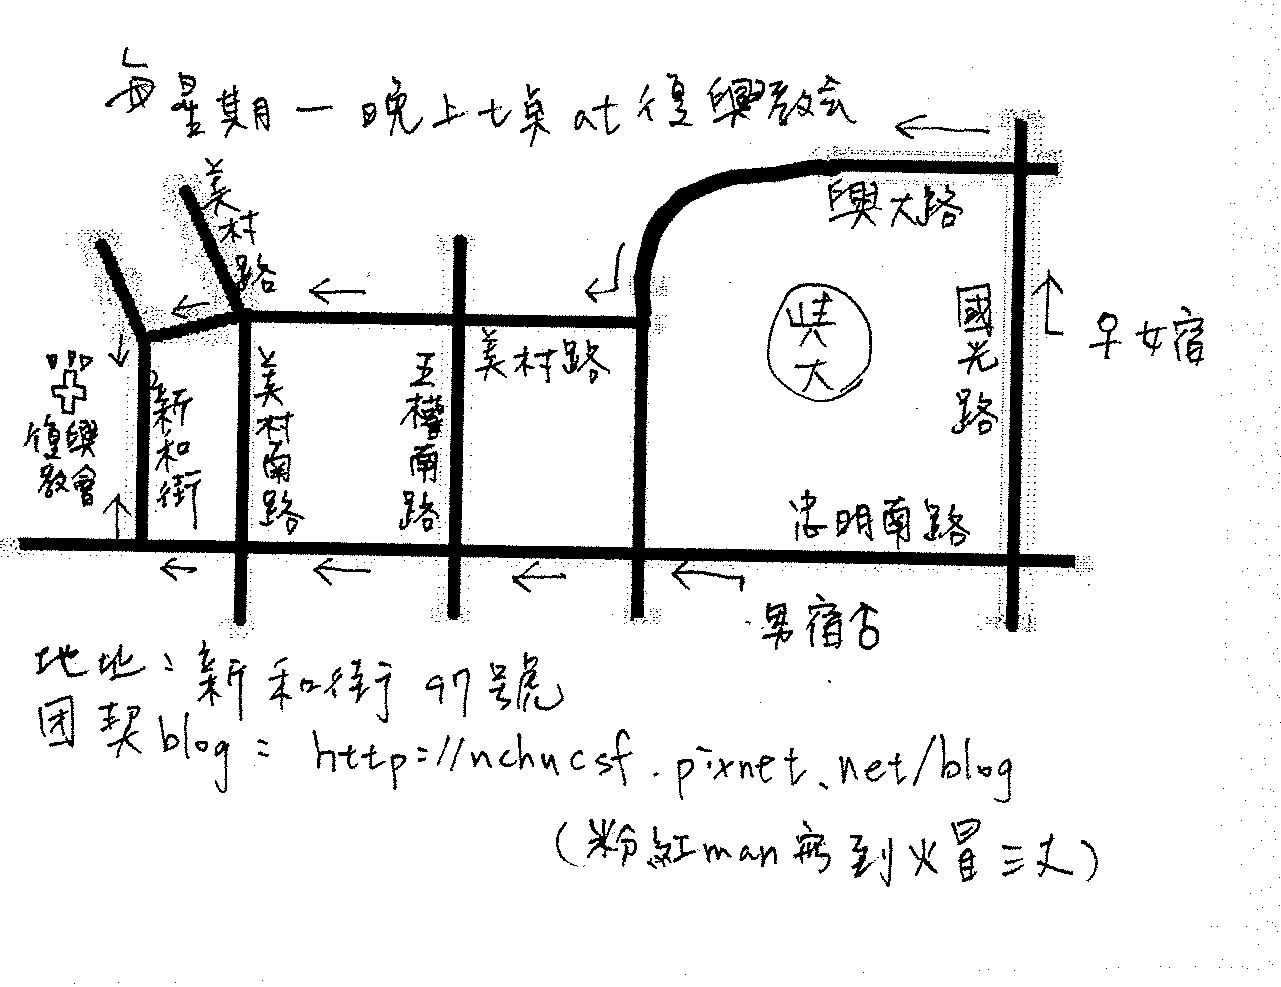 每星期一晚上七点at復興教会
美村路
興大路
國光路
興大
女宿
美村路
五權南路
美村南路
新和街
復興
教會
忠明南路
男宿
地址：新和街97號
团契blog：http://nchucsf.pixnet.net/blog
（粉紅man寫到火冒三丈）